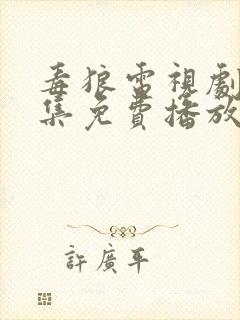 毒狼雷視劇
集免費播放
許廣平